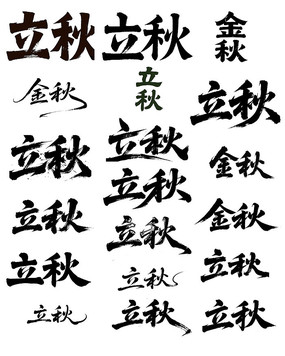 立秋
金秋
立秋
立秋
立秋
立秋
立秋
立秋
立秋
立秋
立秋
立秋
立秋
金秋
立秋
金秋
金秋
立秋
立秋